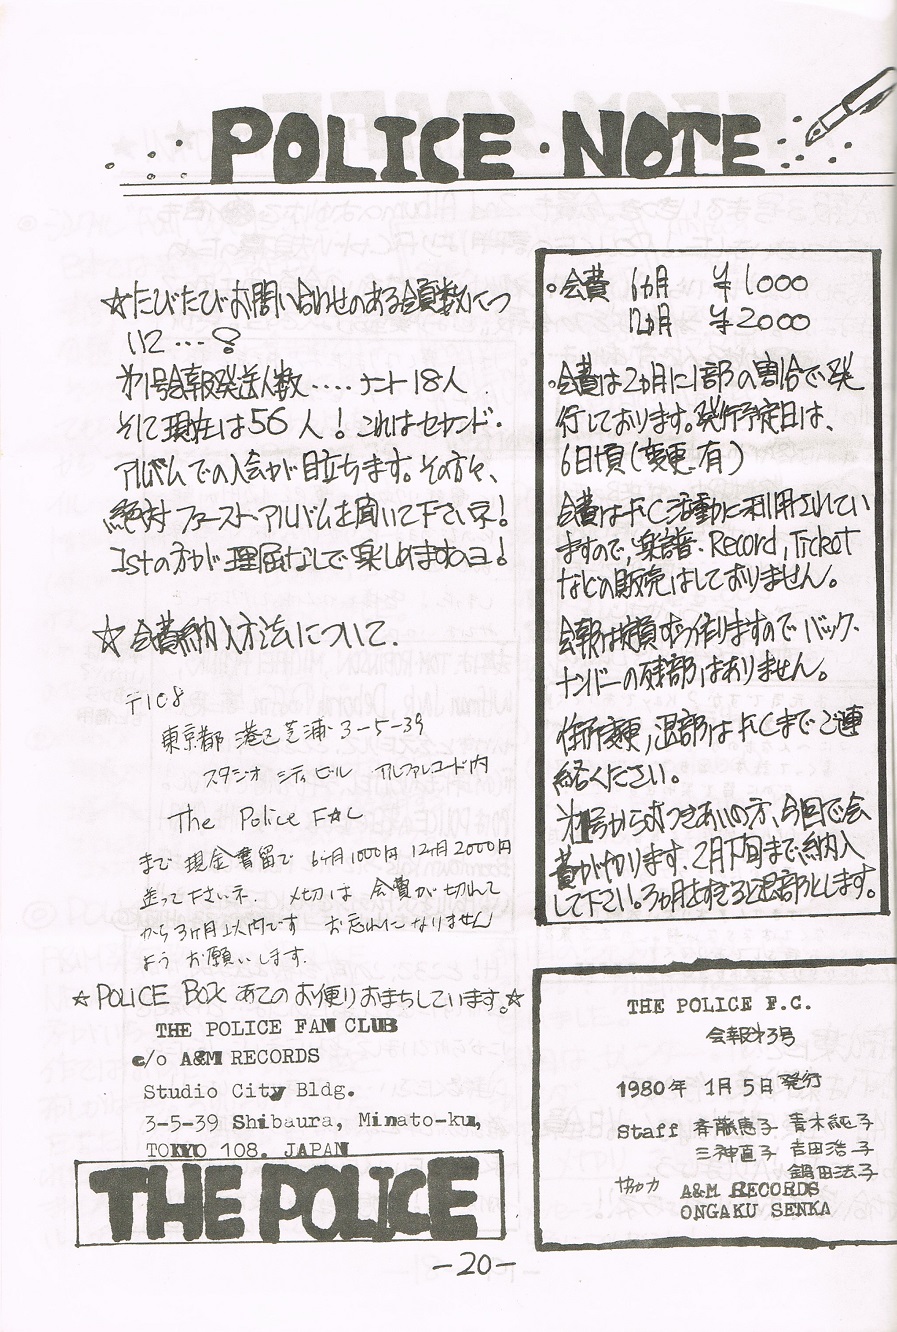 POLICE・NOTE
☆たびたびお問い合わせのある会員数につ
いて…?
第1号会報発送人数....ナント18人
そして現在は56人!これはセカンド・
アルバムでの入会が目立ちます。その方々、
絶対ファースト・アルバムを聞いて下さいネ!
1stの方が理屈なしで楽しめますのヨ!
☆会費納入方法について
〒108
東京都 港区 芝浦 3-5-39
スタジオ シティ ビル アルファレコード内
The Police F☆C
まで 現金書留で 6ヶ月1000円 12ヶ月2000円
送って下さいネ. 〆切は 会費が切れて
から3ヶ月以内です お忘れになりません
よう お願いします.
☆POLICE BOX あてのお便りおまちしています。☆
THE POLICE FAN CLUB
c/o A&M RECORDS
Studio City Bldg.
3-5-39 Shibaura, Minato-ku,
TOKYO 108. JAPAN
THE POLICE
。会費 6ヵ月 ¥1000
12ヵ月 ¥2000
。会費は2ヵ月に1部の割合で発
行しております。発行予定日は、
6日頃(変更有)
会費はF.C活動に利用されてい
ますので、楽譜・Record, Ticket
などの販売はしておりません。
会報は人数分ずつ作りますのでバック・
ナンバーの残部はありません。
住所変更,退部はF.Cまでご連
絡ください。
第1号からおつきあいの方、今回で会
費がかわります。2月下旬まで納入
して下さい。3ヵ月をすぎると退部とします。
THE POLICE F.C.
会報第3号
1980年 1月5日発行
Staff 斉藤恵子 青木純子
三神直子 吉田浩子
鍋田法子
協力 A&M RECORDS
ONGAKU SENKA
-20-